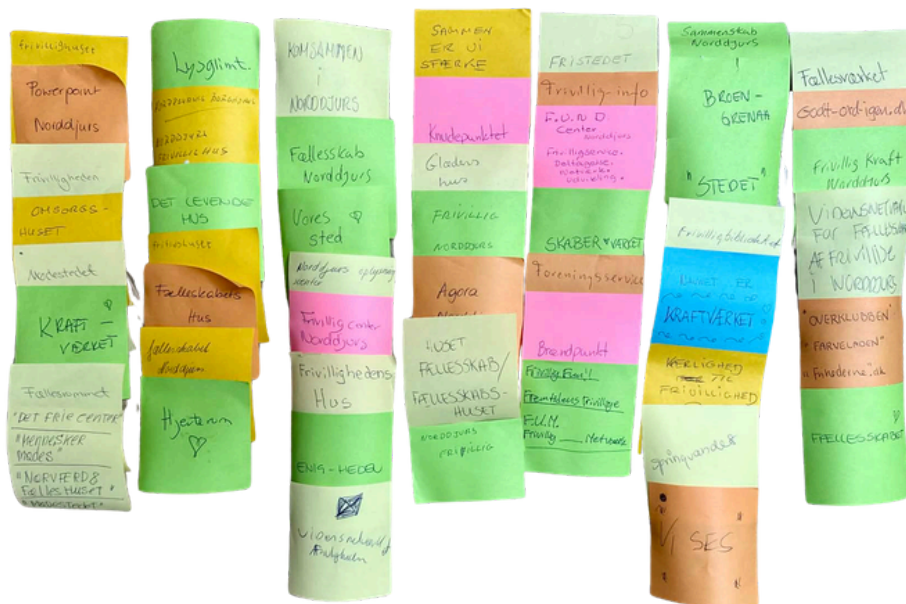 Frivillighuset
Powerpoint
Norddjurs
Frivilligheden
OMSORGS-
HUSET
Mødestedet
KRAFT-
VÆRKET
Fællesrummet
"DET FRIE CENTER"
"Mennesker
mødes"
"NORVFERDS
FællesHuset"
Lysglimt.
NORDDJURS
FRIVILLIGHUS
DET LEVENDE
HUS
Frivillighuset
Fælleskabets
Hus
fælleskabet
Norddjurs
Hjerterum
KOMSAMMEN
i
NORDDJURS
Fællesskab
Norddjurs
Vores
sted
Norddjurs oplysnings
center
Frivillig center
Norddjurs
Frivillighedens
Hus
ENIG-HEDEN
Vidensnetværket
SAMMEN
ER VI
STÆRKE
Knudepunktet
Glædens
hus
FRIVILLIG
NORDDJURS
Agora
HUSET
FÆLLESSKAB/
FÆLLESSKABS-
HUSET
NORDDJURS
FRIVILLIG
FRISTEDET
Frivillig-info
F.U.N.D
Center
Norddjurs
Frivilligservice.
Deltagelse.
Netværk.
Udvikling.
SKABERVÆRKET
Foreningsservice
Brændpunkt
Fremtidens Frivillige
F.U.M.
Frivillig Netværk
Sammenskab
Norddjurs
BROEN-
GRENAA
"STEDET"
Frivilligbiblioteket
NAVNET ER
KRAFTVÆRKET
KÆRLIGHED
TIL
FRIVILLIGHED
Springvandet
"VI SES"
Fællesværket
Godt-ord-igen.dk
Frivillig Kraft
Norddjurs
VIDENSNETVÆRK
FOR FÆLLESSKAB
AF FRIVILLIGE
I NORDDJURS
"OVERKLUBBEN"
"FARVELADEN"
"Enhederne".dk
FÆLLESSKABET